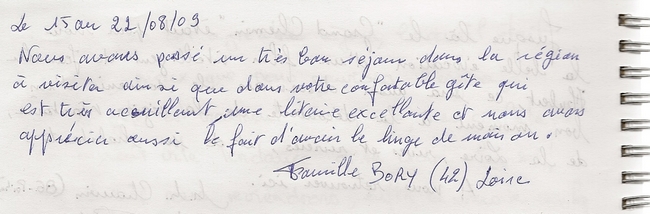 Le 15 au 22/08/09
Nous avons passé un très bon séjour dans la région
à visiter ainsi que dans votre confortable gîte qui
est très accueillant, une literie excellente et nous avons
apprécier aussi le fait d'avoir le linge de maison.
Famille BORY (42) Loire